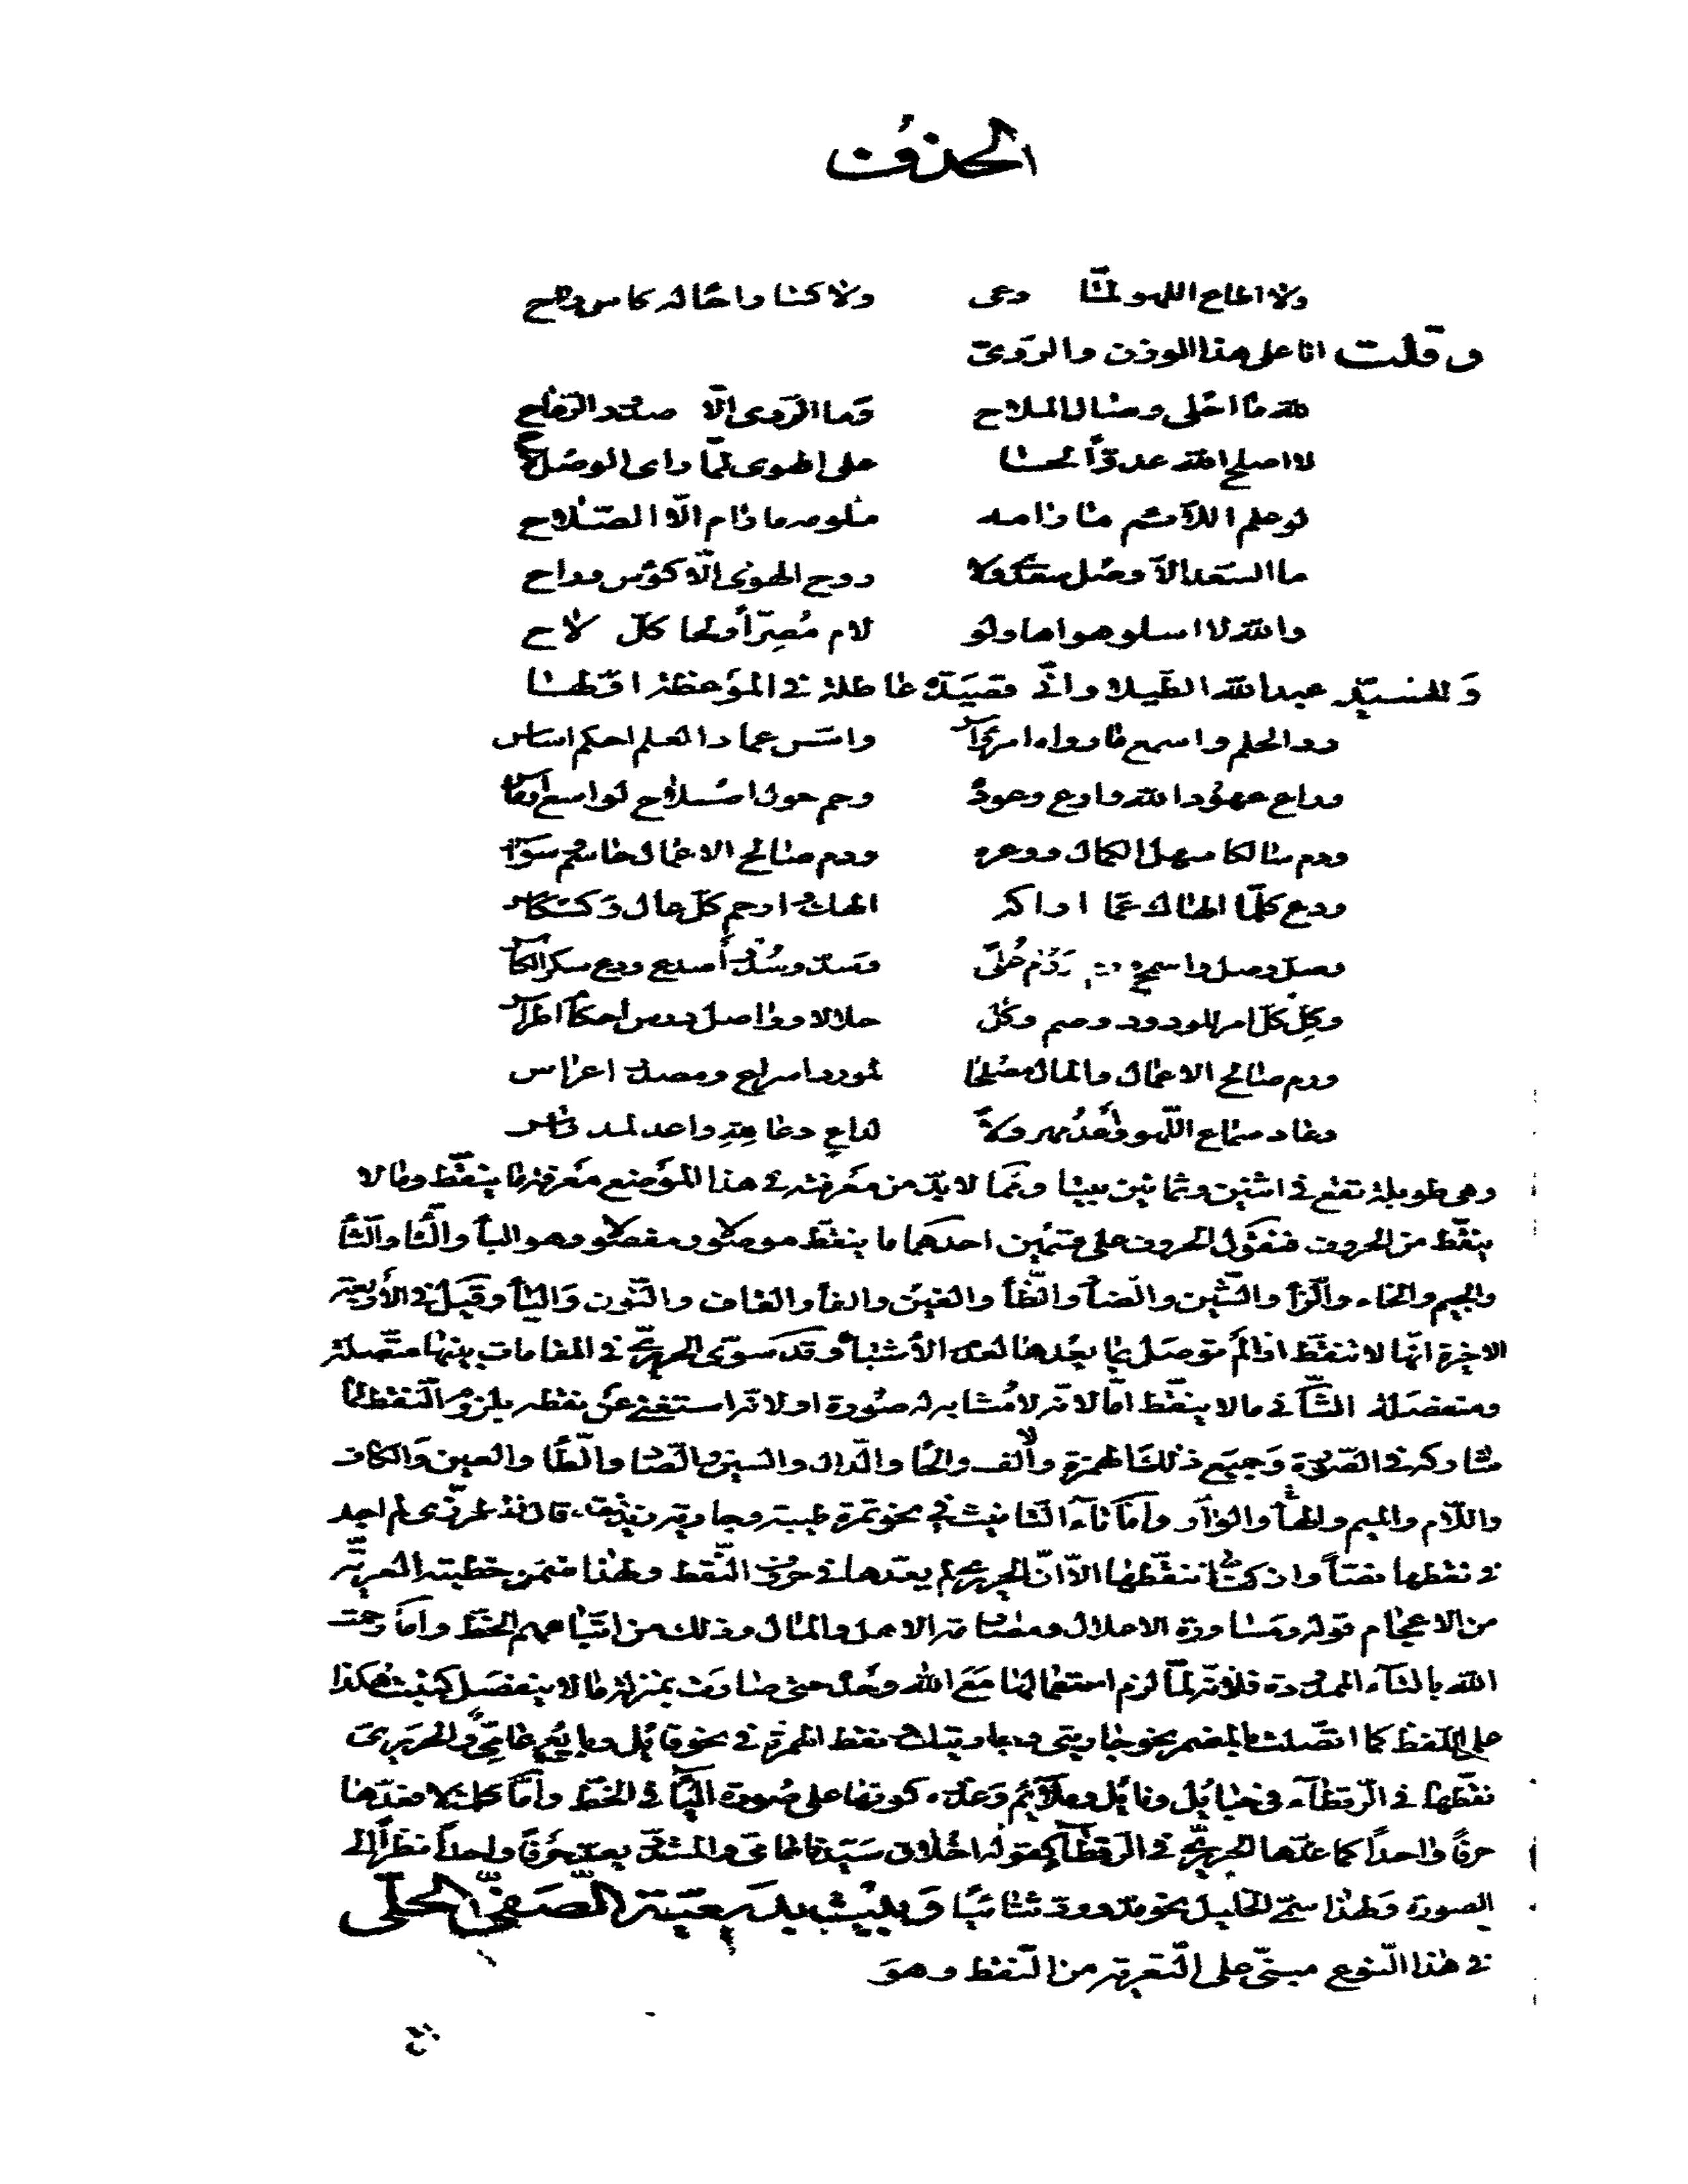 الحذف
ولا اطاع اللهو لمّا دعى ولا كسا راحاله كاس راح
وقلت انا على هذا الوزن والروىّ
لله ما احلى وصال الملاح وما الرّدى الّا صدود الرداح
لا اصلح الله عدوّاً لحسا على الهوى لمّا راى الوصل
لو علم اللّائم ما رامه ملومه ما رام الّا الصّلاح
ما السّعد الّا وصل معكولا وروح الهوى الّا كؤس وراح
والله لا اسلو هواها ولو لام مُصِرّاً ولحا كلّ لاح
وللسيّد عبدالله الطبلاوى قصيدة عاطلة فى الموعظة اوّلها
رد الحلم واسمع ما رواه واسّس عماد العلم احكم اساس
وراع عهود الله وادع وعود وحم حول اصلاح لواسع
ورم سالكا سهل الكمال ووعره ودم صالح الاعمال حاسم
ودع كلّما الهاك عمّا اراكه الهك وارحم كلّ عال
وصلّ وصل واسمح وسد وسُد أصدع ودع سكر الكاس
وكِل كلّ امر للودود وصم وكل حلالا وواصل درس احكام
ودم صالح الاعمال والمال مصلحا لمورد اسراح ومصدر اعراس
وعاد سماع اللّهو لداع دعا عِدِ واعد له
وهى طويلة تقع فى اثنين وثمانين بيتا وممّا لا بدّ من معرفته فى هذا الموضع معرفة ما ينقّط وما لا
ينقّط من الحروف فنقول الحروف على قسمين احدهما ما ينقّط موصولا ومفصولا وهو البآ والتّا والثّآ
والجيم والخاء والزّا والشّين والضّآ والظّآ والغين والفآ والقاف والنّون واليّآ وقيل فى الأربعة
الاخيرة انّها لا تنقّط اذا لم توصل بما بعدها لعدم الأشباه وقد سوّى الحريرىّ فى المقامات بينها متّصلة
ومنفصلة الثّانى ما لا ينقّط امّا لانّه لا مُشابه له صورة او لانّه استغنى عن نقطه بلزوم النّقط لما
شاركه فى الصّورة وجميع ذلك الهمزة والألف والحا والدّال والسين والصّا والطّا والعين والكاف
واللّام والميم والهآ والواو وأمّا تآء التّانيث فى نحو تمرة طيبة وجارية قال لم اجد
فى نقطها نصّاً وان كنّا ننقّطها الّا انّ الحريرى لم يعدّها فى حروف النّقط ولهذا ضمّن خطبته المعريّة
من الاعجام قوله ومساورة الاعلال ومصارمة الاهل والمال وذلك من اتّباعهم الخطّ وأمّا رحمت
الله بالتّاء الممدودة فلانّه لمّا لزم استعمالها مع الله وحده حتى صارت بمنزلة ما لا ينفصل كتبت هكذا
على اللّفظ كما اتّصلت بالمضمر نحو جاريتى وجاريتك نقط الهمزة فى نحو قايل وبايع عامىّ والحريرى
نقّطها فى الرّقطآء فى خبايل وقايل وملآئم وعدّه كونها على صورة اليآ فى الخطّ وأمّا فعدّها
حرفاً واحداً كما عدّها الحريرىّ فى الرّقطآ كقوله اخلاق سيّدنا والمشدّد يعدّ حرفاً واحداً نظراً الى
الصورة ولهذا سمّى الخليل نحو مدّ وردّ ثنائيّا وبيت بديعيّة الصّفىّ الحلّى
فى هذا النّوع مبنىّ على التّعرية من النّقط وهو